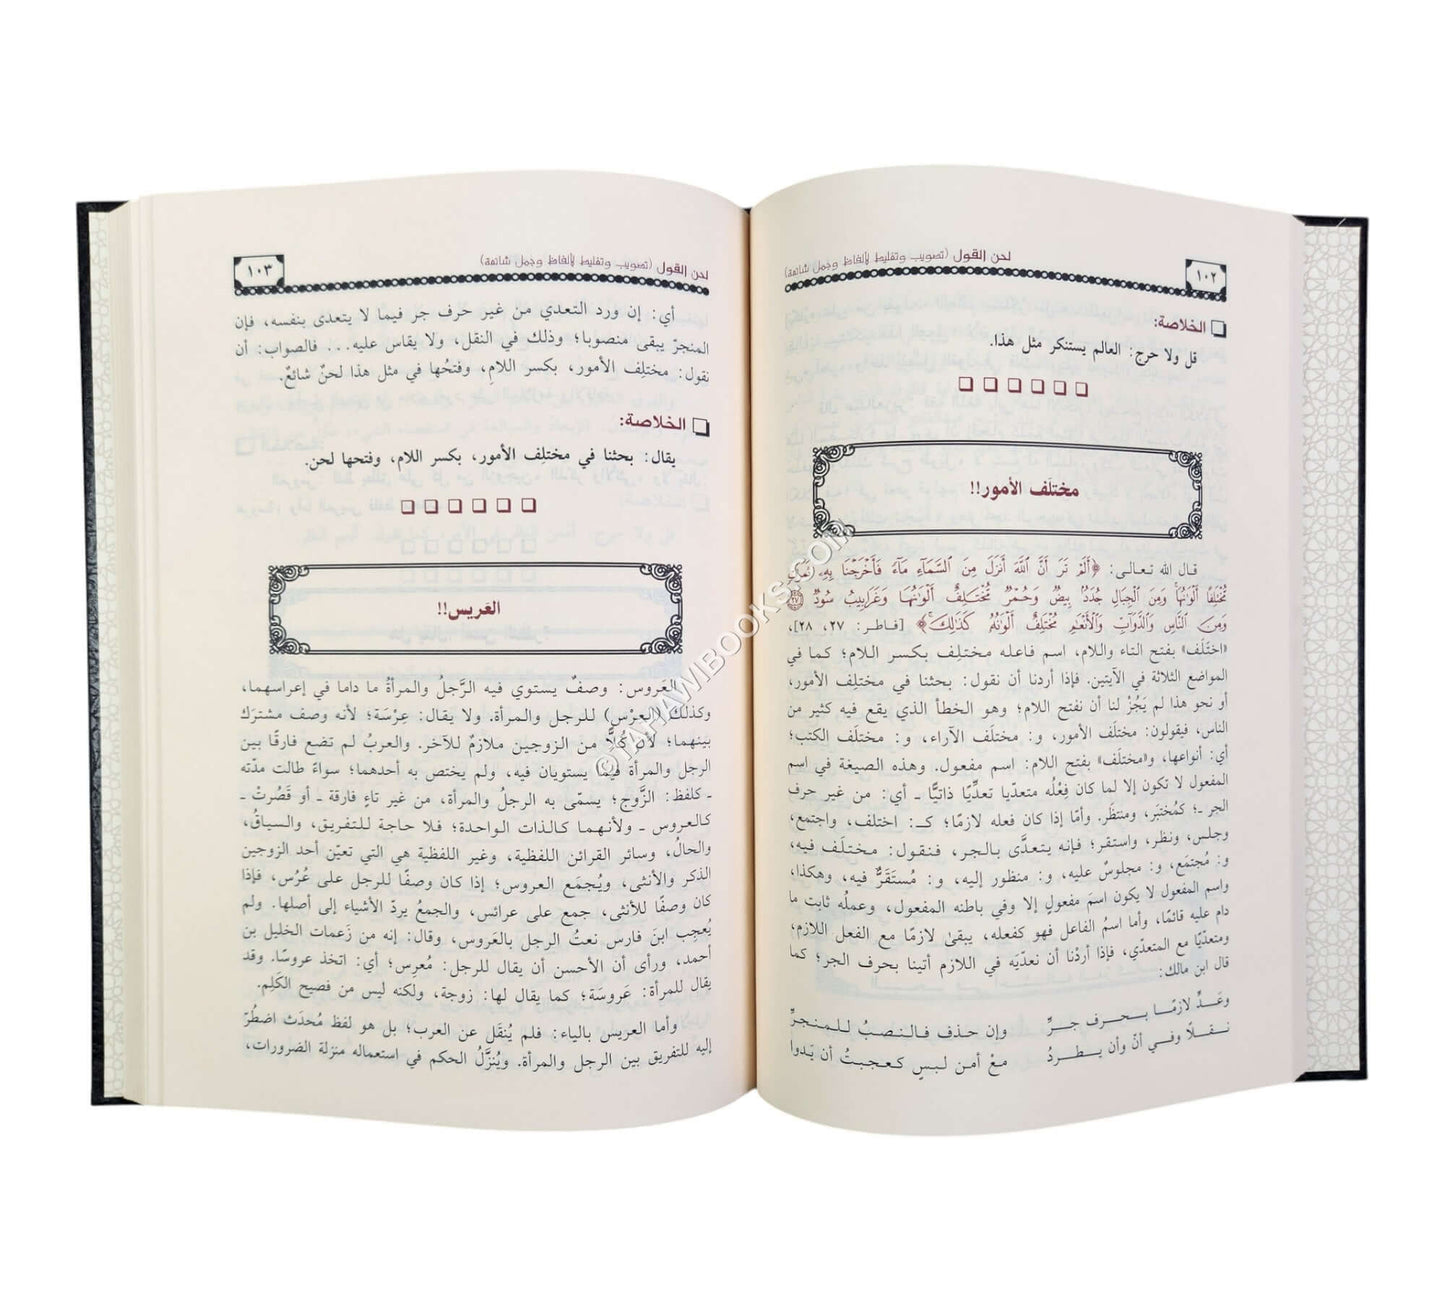 لحن القول (تصويب وتغليط لألفاظ وجمل شائعة)
١٠٢
الخلاصة:
قل ولا حرج: العالم يستنكر مثل هذا.
مختلَف الأمور!!
قال الله تعالى: ﴿أَلَمْ تَرَ أَنَّ اللَّهَ أَنزَلَ مِنَ السَّمَاءِ مَاءً فَأَخْرَجْنَا بِهِ ثَمَرَاتٍ
مُّخْتَلِفًا أَلْوَانُهَا وَمِنَ الْجِبَالِ جُدَدٌ بِيضٌ وَحُمْرٌ مُّخْتَلِفٌ أَلْوَانُهَا وَغَرَابِيبُ سُودٌ ٢٧
وَمِنَ النَّاسِ وَالدَّوَابِّ وَالْأَنْعَامِ مُخْتَلِفٌ أَلْوَانُهُ كَذَلِكَ﴾ [فاطر: ٢٧، ٢٨]،
«اختَلَف» بفتح التاء واللام، اسم فاعله مختلِف بكسر اللام؛ كما في
المواضع الثلاثة في الآيتين. فإذا أردنا أن نقول: بحثنا في مختلِف الأمور،
أو نحو هذا لم يَجُزْ لنا أن نفتح اللام؛ وهو الخطأ الذي يقع فيه كثير من
الناس، فيقولون: مختلَف الأمور، و: مختلَف الآراء، و: مختلَف الكتب؛
أي: أنواعها، و«مختلَف» بفتح اللام: اسم مفعول. وهذه الصيغة في اسم
المفعول لا تكون إلا لما كان فِعْلُه متعديا تعدِّيًا ذاتيًّا ـ أي: من غير حرف
الجر ـ؛ كمُختبَر، ومنتظَر. وأمّا إذا كان فعله لازمًا؛ كـ: اختلف، واجتمع،
وجلس، ونظر، واستقر؛ فإنه يتعدَّى بالجر، فنقول: مختلَف فيه،
و: مُجتمَع، و: مجلوسٌ عليه، و: منظور إليه، و: مُستَقَرٌّ فيه، وهكذا،
واسم المفعول لا يكون اسمَ مفعولٍ إلا وفي باطنه المفعول، وعملُه ثابت ما
دام عليه قائمًا، وأما اسمُ الفاعل فهو كفعله، يبقىٰ لازمًا مع الفعل اللازم،
ومتعديًا مع المتعدّي، فإذا أردْنا أن نعدّيَه في اللازم أتينا بحرف الجر؛ كما
قال ابن مالك:
وعَدِّ لازمًا بحرف جرِّ وإن حذف فالنصبُ للمنجرِّ
نقلًا وفي أنّ وأن يطردُ معْ أمن لبسٍ كعجبتُ أن يَدوا
لحن القول (تصويب وتغليط لألفاظ وجمل شائعة)
١٠٣
أي: إن ورد التعدي من غير حرف جر فيما لا يتعدى بنفسه، فإن
المنجرّ يبقى منصوبا؛ وذلك في النقل، ولا يقاس عليه... فالصواب: أن
نقول: مختلِف الأمور، بكسر اللامِ، وفتحُها في مثل هذا لحنٌ شائعٌ.
الخلاصة:
يقال: بحثنا في مختلِف الأمور، بكسر اللام، وفتحها لحن.
العَريس!!
العَروس: وصفٌ يستوي فيه الرَّجلُ والمرأةُ ما داما في إعراسهما،
وكذلك (العِرْس) للرجل والمرأة. ولا يقال: عِرْسَة؛ لأنه وصف مشترَك
بينهما؛ لأن كُلًّا من الزوجين ملازمٌ للآخر. والعربُ لم تضع فارقًا بين
الرجل والمرأة فيما يستويان فيه، ولم يختص به أحدهما؛ سواءً طالت مدّته
ـ كلفظ: الزَّوج؛ يسمّى به الرجلُ والمرأة، من غير تاءٍ فارقة ـ أو قَصُرتْ ـ
كالعروس ـ ولأنهما كالذات الواحدة؛ فلا حاجة للتفريق، والسياقُ،
والحالُ، وسائر القرائن اللفظية، وغير اللفظية هي التي تعيّن أحد الزوجين
الذكر والأنثى، ويُجمَع العروس؛ إذا كان وصفًا للرجل على عُرُس، فإذا
كان وصفًا للأنثى، جمع على عرائس، والجمعُ يردّ الأشياء إلى أصلها. ولم
يُعجِب ابنَ فارس نعتُ الرجل بالعَروس، وقال: إنه من زَعمات الخليل بن
أحمد، ورأى أن الأحسن أن يقال للرجل: مُعرِس؛ أي: اتخذ عروسًا. وقد
يقال للمرأة: عَروسَة؛ كما يقال لها: زوجة، ولكنه ليس من فصيح الكَلِم.
وأما العريس بالياء: فلم يُنقَل عن العرب؛ بل هو لفظ مُحدَث اضطُرّ
إليه للتفريق بين الرجل والمرأة. ويُنزَّلُ الحكم في استعماله منزلة الضرورات،
©JARIRBOOKS.COM